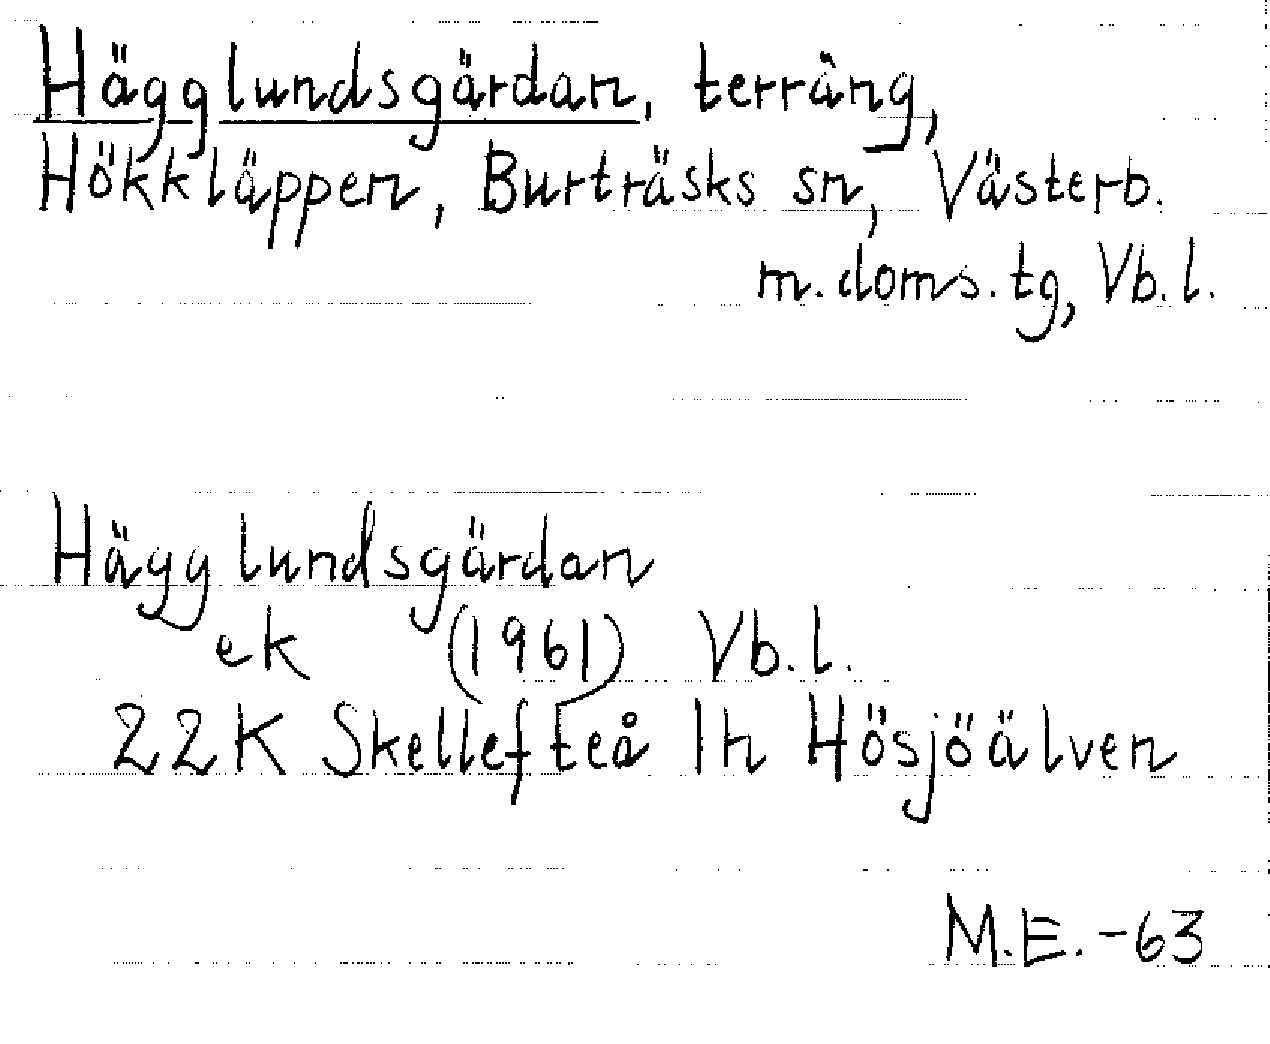 Hägglundsgärdan, terräng,
Hökkläppen, Burträsks sn, Västerb.
m. doms. tg, Vb. l.
Hägglundsgärdan
ek (1961) Vb. l.
22K Skellefteå 1h Hösjöälven
M.E. -63